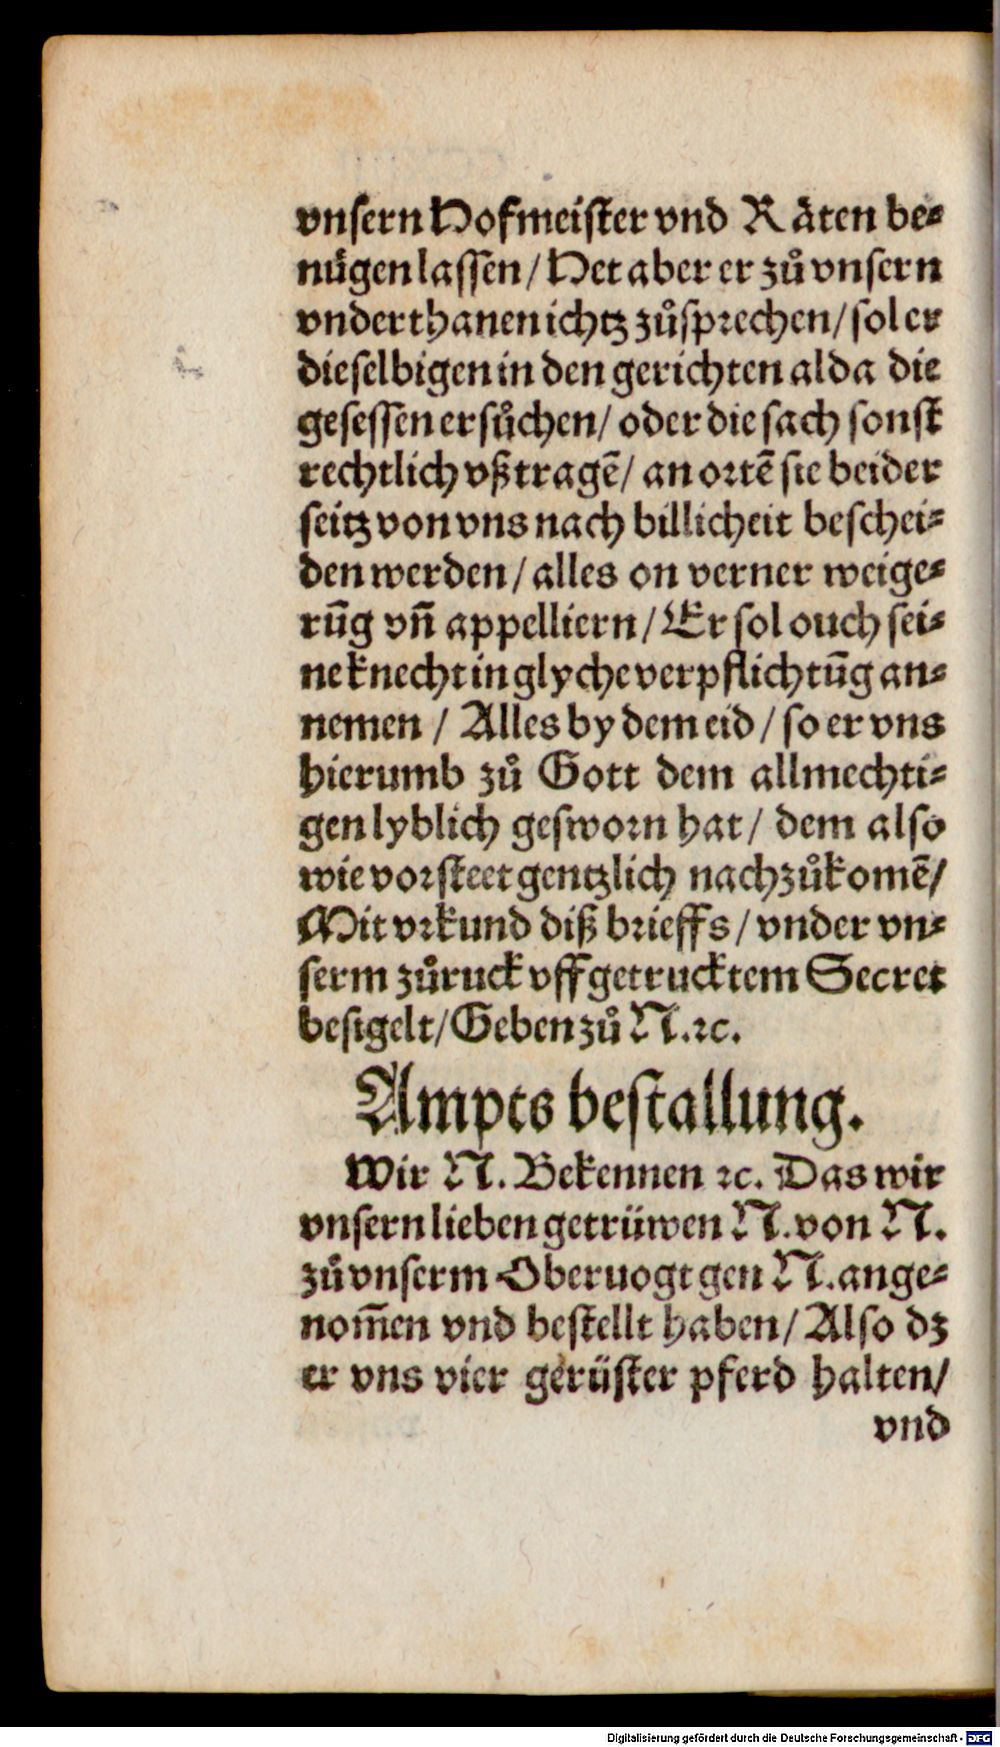 vnsern Hofmeister vnd Räten be⸗
nügen lassen/ Het aber er zů vnsern
vnderthanen ichtz zůsprechen/ sol er
dieselbigen in den gerichten alda die
gesessen ersůchen/ oder die sach sonst
rechtlich vßtragē/ an ortē sie beider
seitz von vns nach billicheit beschei⸗
den werden/ alles on verner weige⸗
rūg vn̄ appelliern/ Er sol ouch sei⸗
ne knecht in glyche verpflichtūg an⸗
nemen / Alles by dem eid/ so er vns
hierumb zů Gott dem allmechti⸗
gen lyblich gesworn hat/ dem also
wie vorsteet gentzlich nachzůkomē/
Mit vrkund diß brieffs/ vnder vn⸗
serm zůruck vffgetrucktem Secret
besigelt/ Geben zů N.ꝛc.
Ampts bestallung.
Wir N. Bekennen ꝛc. Das wir
vnsern lieben getrüwen N. von N.
zů vnserm Oberuogt gen N. ange⸗
nom̄en vnd bestellt haben/ Also dz
er vns vier gerüster pferd halten/
vnd
Digitalisierung gefördert durch die Deutsche Forschungsgemeinschaft - DFG